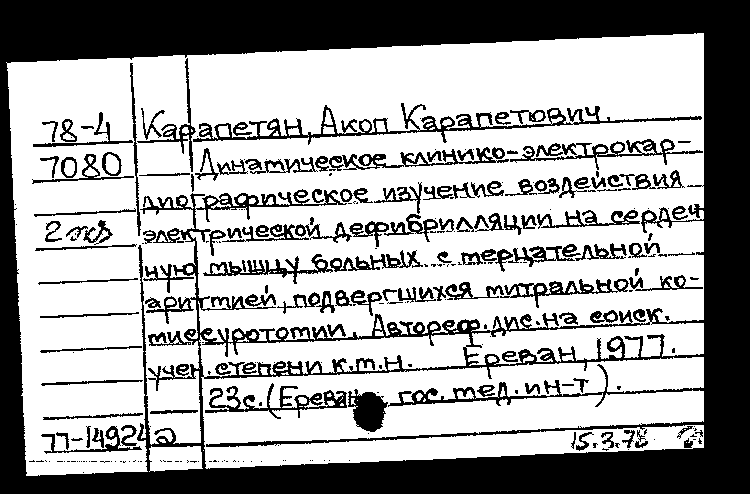 78-4 Карапетян, Акоп Карапетович.
7080 Динамическое клинико-электрокар-
диографическое изучение воздействия
2 экз электрической дефибрилляции на сердеч
ную мышцу больных с мерцательной
аритмией, подвергшихся митральной ко-
миссуротомии. Автореф. дис. на соиск.
учен. степени к.м.н. Ереван, 1977.
23с. (Ереван. гос. мед. ин-т).
77-14924а 15.3.78